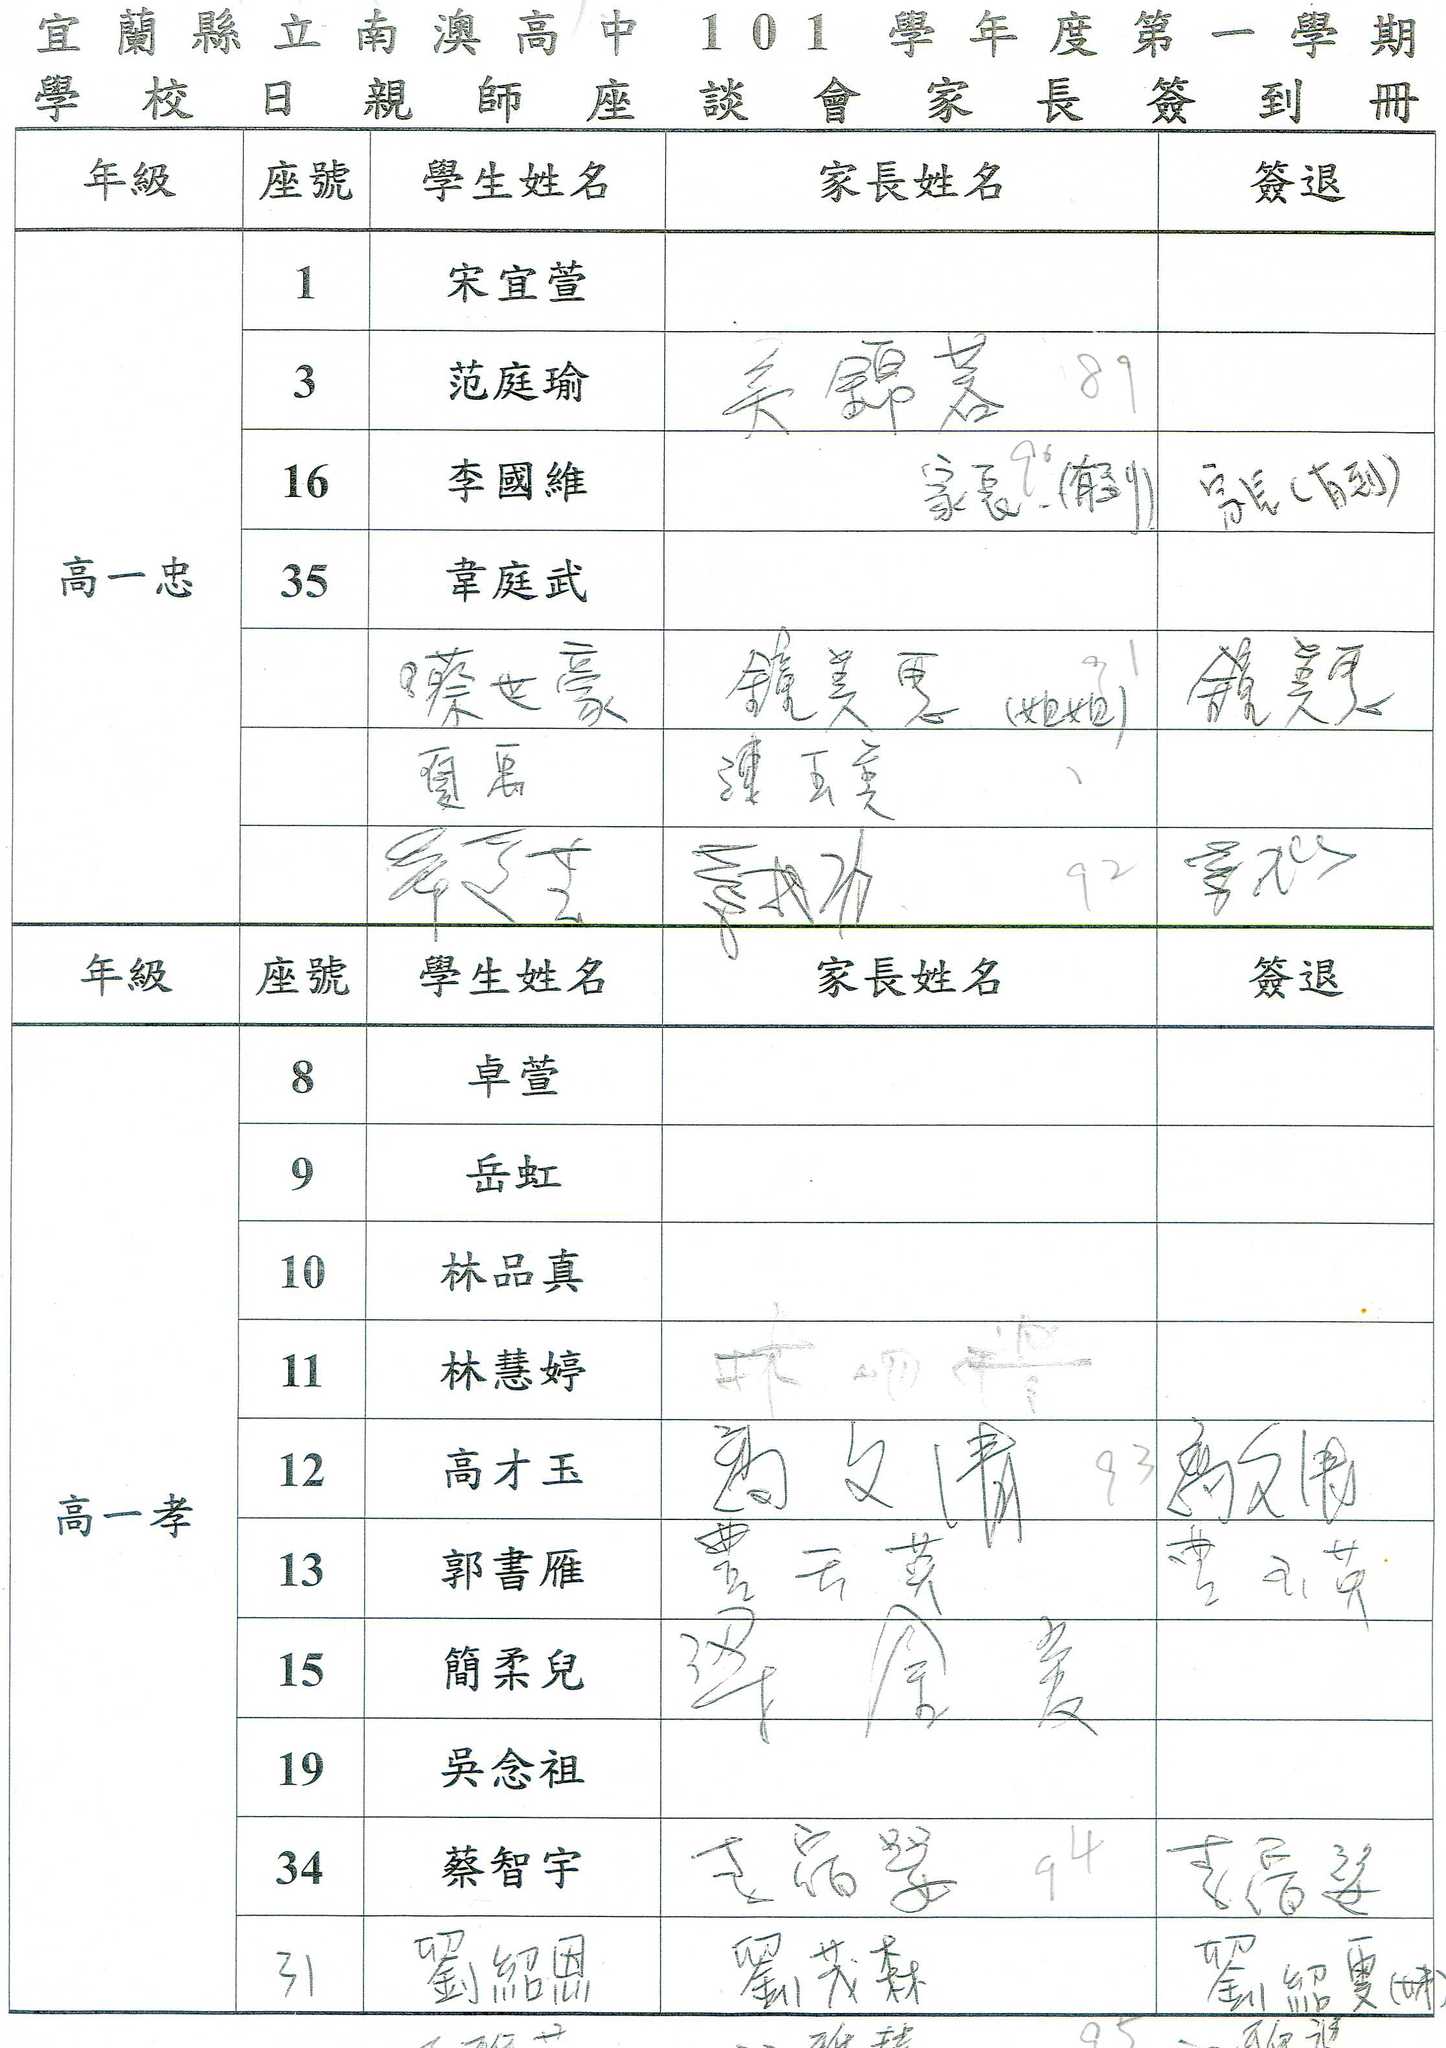 宜蘭縣立南澳高中 101 學年度第一學期
學校日親師座談會家長簽到冊
年級 座號 學生姓名 家長姓名 簽退
高一忠
1 宋宜萱
3 范庭瑜 吳錦蓉 89
16 李國維 家長 (有到) 96 家長(有到)
35 韋庭武
蔡世豪 鐘美恩 (姐姐) 91 鐘美恩
夏禹 陳玉英
92
年級 座號 學生姓名 家長姓名 簽退
高一孝
8 卓萱
9 岳虹
10 林品真
11 林慧婷 林
12 高才玉 高文清 93 高文清
13 郭書雁 英 英
15 簡柔兒
19 吳念祖
34 蔡智宇 94
31 劉紹恩 劉茂森 劉紹雯(妹)
95